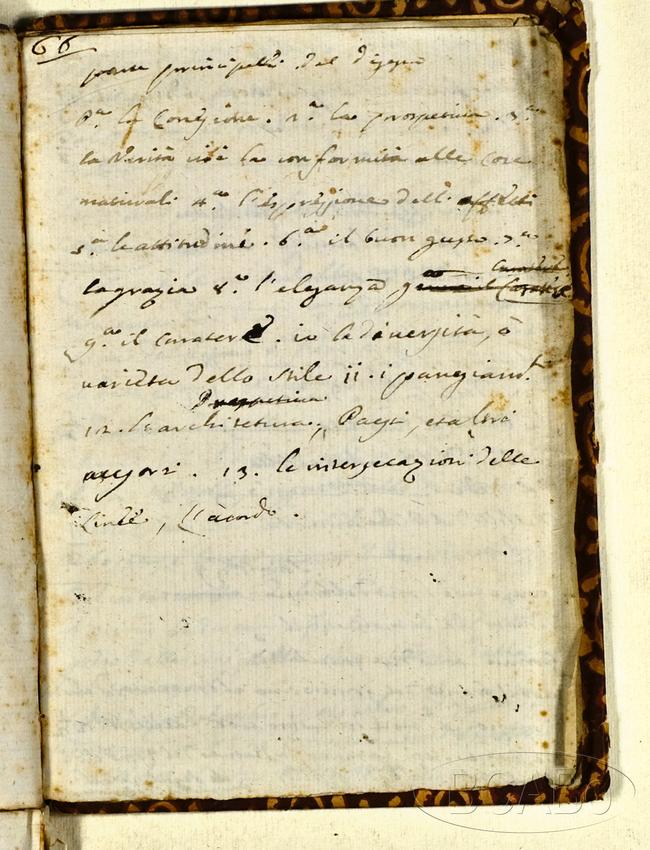 66
parte principali del disegno
P.ª la Corezione. 2.ª la prospetiva. 3.ª
la Verità cioè la conformità alle Cose
naturali 4.ª l'espressione delli affetti
5.ª le attitudini. 6.ª il buon gusto. 7.ª
la grazia 8.ª l'eleganza
9.ª il Caratere. 10 la diversità, ò
varietà dello stile 11. i panegiam.ti
Prospetiva
12. le architetura, Paesi, et altri
acesori. 13. le intersecazioni delle
Linee, l'acordo.
BCABo